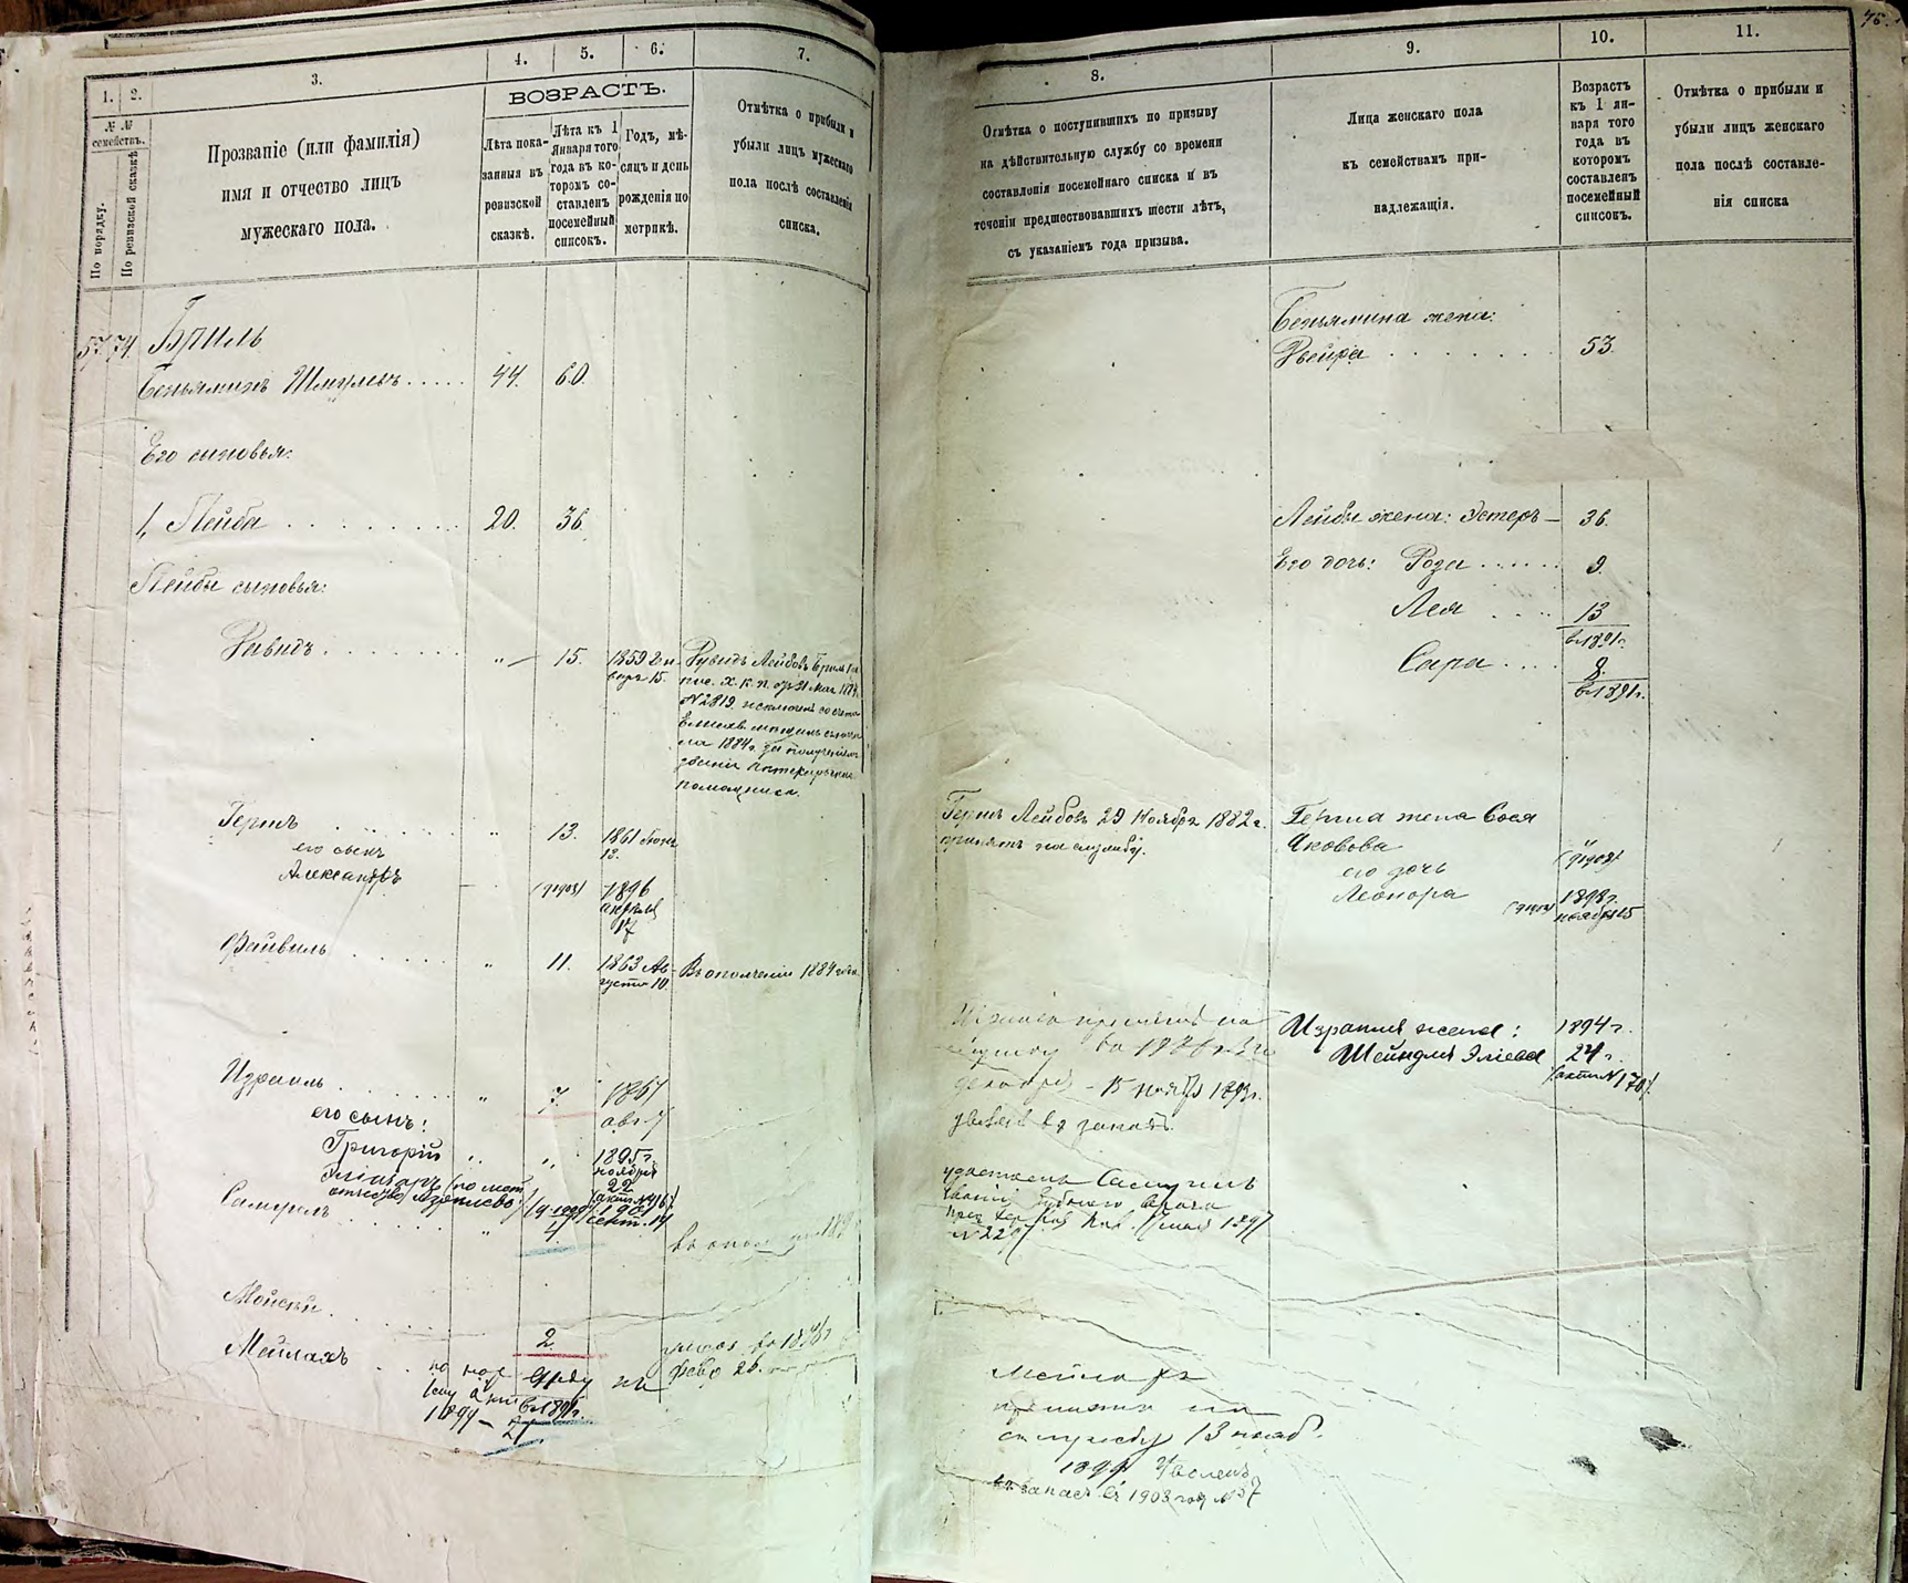 1.
2.
3.
4.
5.
6.
7.
№ №
семействъ.
По порядку.
По ревизской сказкѣ
Прозваніе (или фамилія)
имя и отчество лицъ
мужескаго пола.
ВОЗРАСТЪ.
Лѣта пока-
занныя въ
ревизской
сказкѣ.
Лѣта къ 1
Января того
года въ ко-
торомъ со-
ставленъ
посемейный
списокъ.
Годъ, мѣ-
сяцъ и день
рожденія по
метрикѣ.
Отмѣтка о прибыли и
убыли лицъ мужескаго
пола послѣ составленія
списка.
57 74 Бриль
Беньяминъ Шмулевъ 44. 60.
Его сыновья:
1, Лейба 20. 36.
Лейбы сыновья:
Давидъ „ 15. 1859 Ян-
варя 15.
Лейбовъ Бриль
№ 2819 исключенъ
на 1884 г. за полученіемъ
званія Аптекарскаго
помощника.
Гершъ „ 13. 1861
13.
его сынъ
Александръ 1896
Апрѣля
17
Файвиль „ 11. 1863 Ав-
густа 10. Въ ополченіи 1884 года.
Израиль „ 7. 1867
авг. 7
его сынъ:
Григорій „ „ 1895 г.
ноября
22
Самуилъ „ 4.
сент. 14
Мойсей 2.
Мейлахъ
1899 – 21
75.
8.
9.
10.
11.
Отмѣтка о поступившихъ по призыву
на дѣйствительную службу со времени
составленія посемейнаго списка и въ
теченіи предшествовавшихъ шести лѣтъ,
съ указаніемъ года призыва.
Лица женскаго пола
къ семействамъ при-
надлежащія.
Возрастъ
къ 1 ян-
варя того
года въ
которомъ
составленъ
посемейный
списокъ.
Отмѣтка о прибыли и
убыли лицъ женскаго
пола послѣ составле-
нія списка
Беньямина жена:
Двейра 53.
Лейбы жена: Эстеръ – 36.
Его дочь: Роза 9.
Лея 13
въ 1891 г.
Сара 8.
въ 1891 г.
Гершъ Лейбовъ 29 Ноября 1882 г.
принятъ на службу.
Герша жена Сося
Яковова
его дочь
Леонора 1898 г.
ноября 25
Израиль принятъ на
службу въ
– 15 ноября 1893 г.
уволенъ въ запасъ.
Израиля жена: 1894 г.
Шейндля Эліева 24 г.
(актъ № 170).
удостоенъ Самуилъ
званія Зубного врача
1897
Мейлахъ
принятъ на
службу 13 нояб.
1899 Уволенъ
въ запасъ въ 1903 году № 57